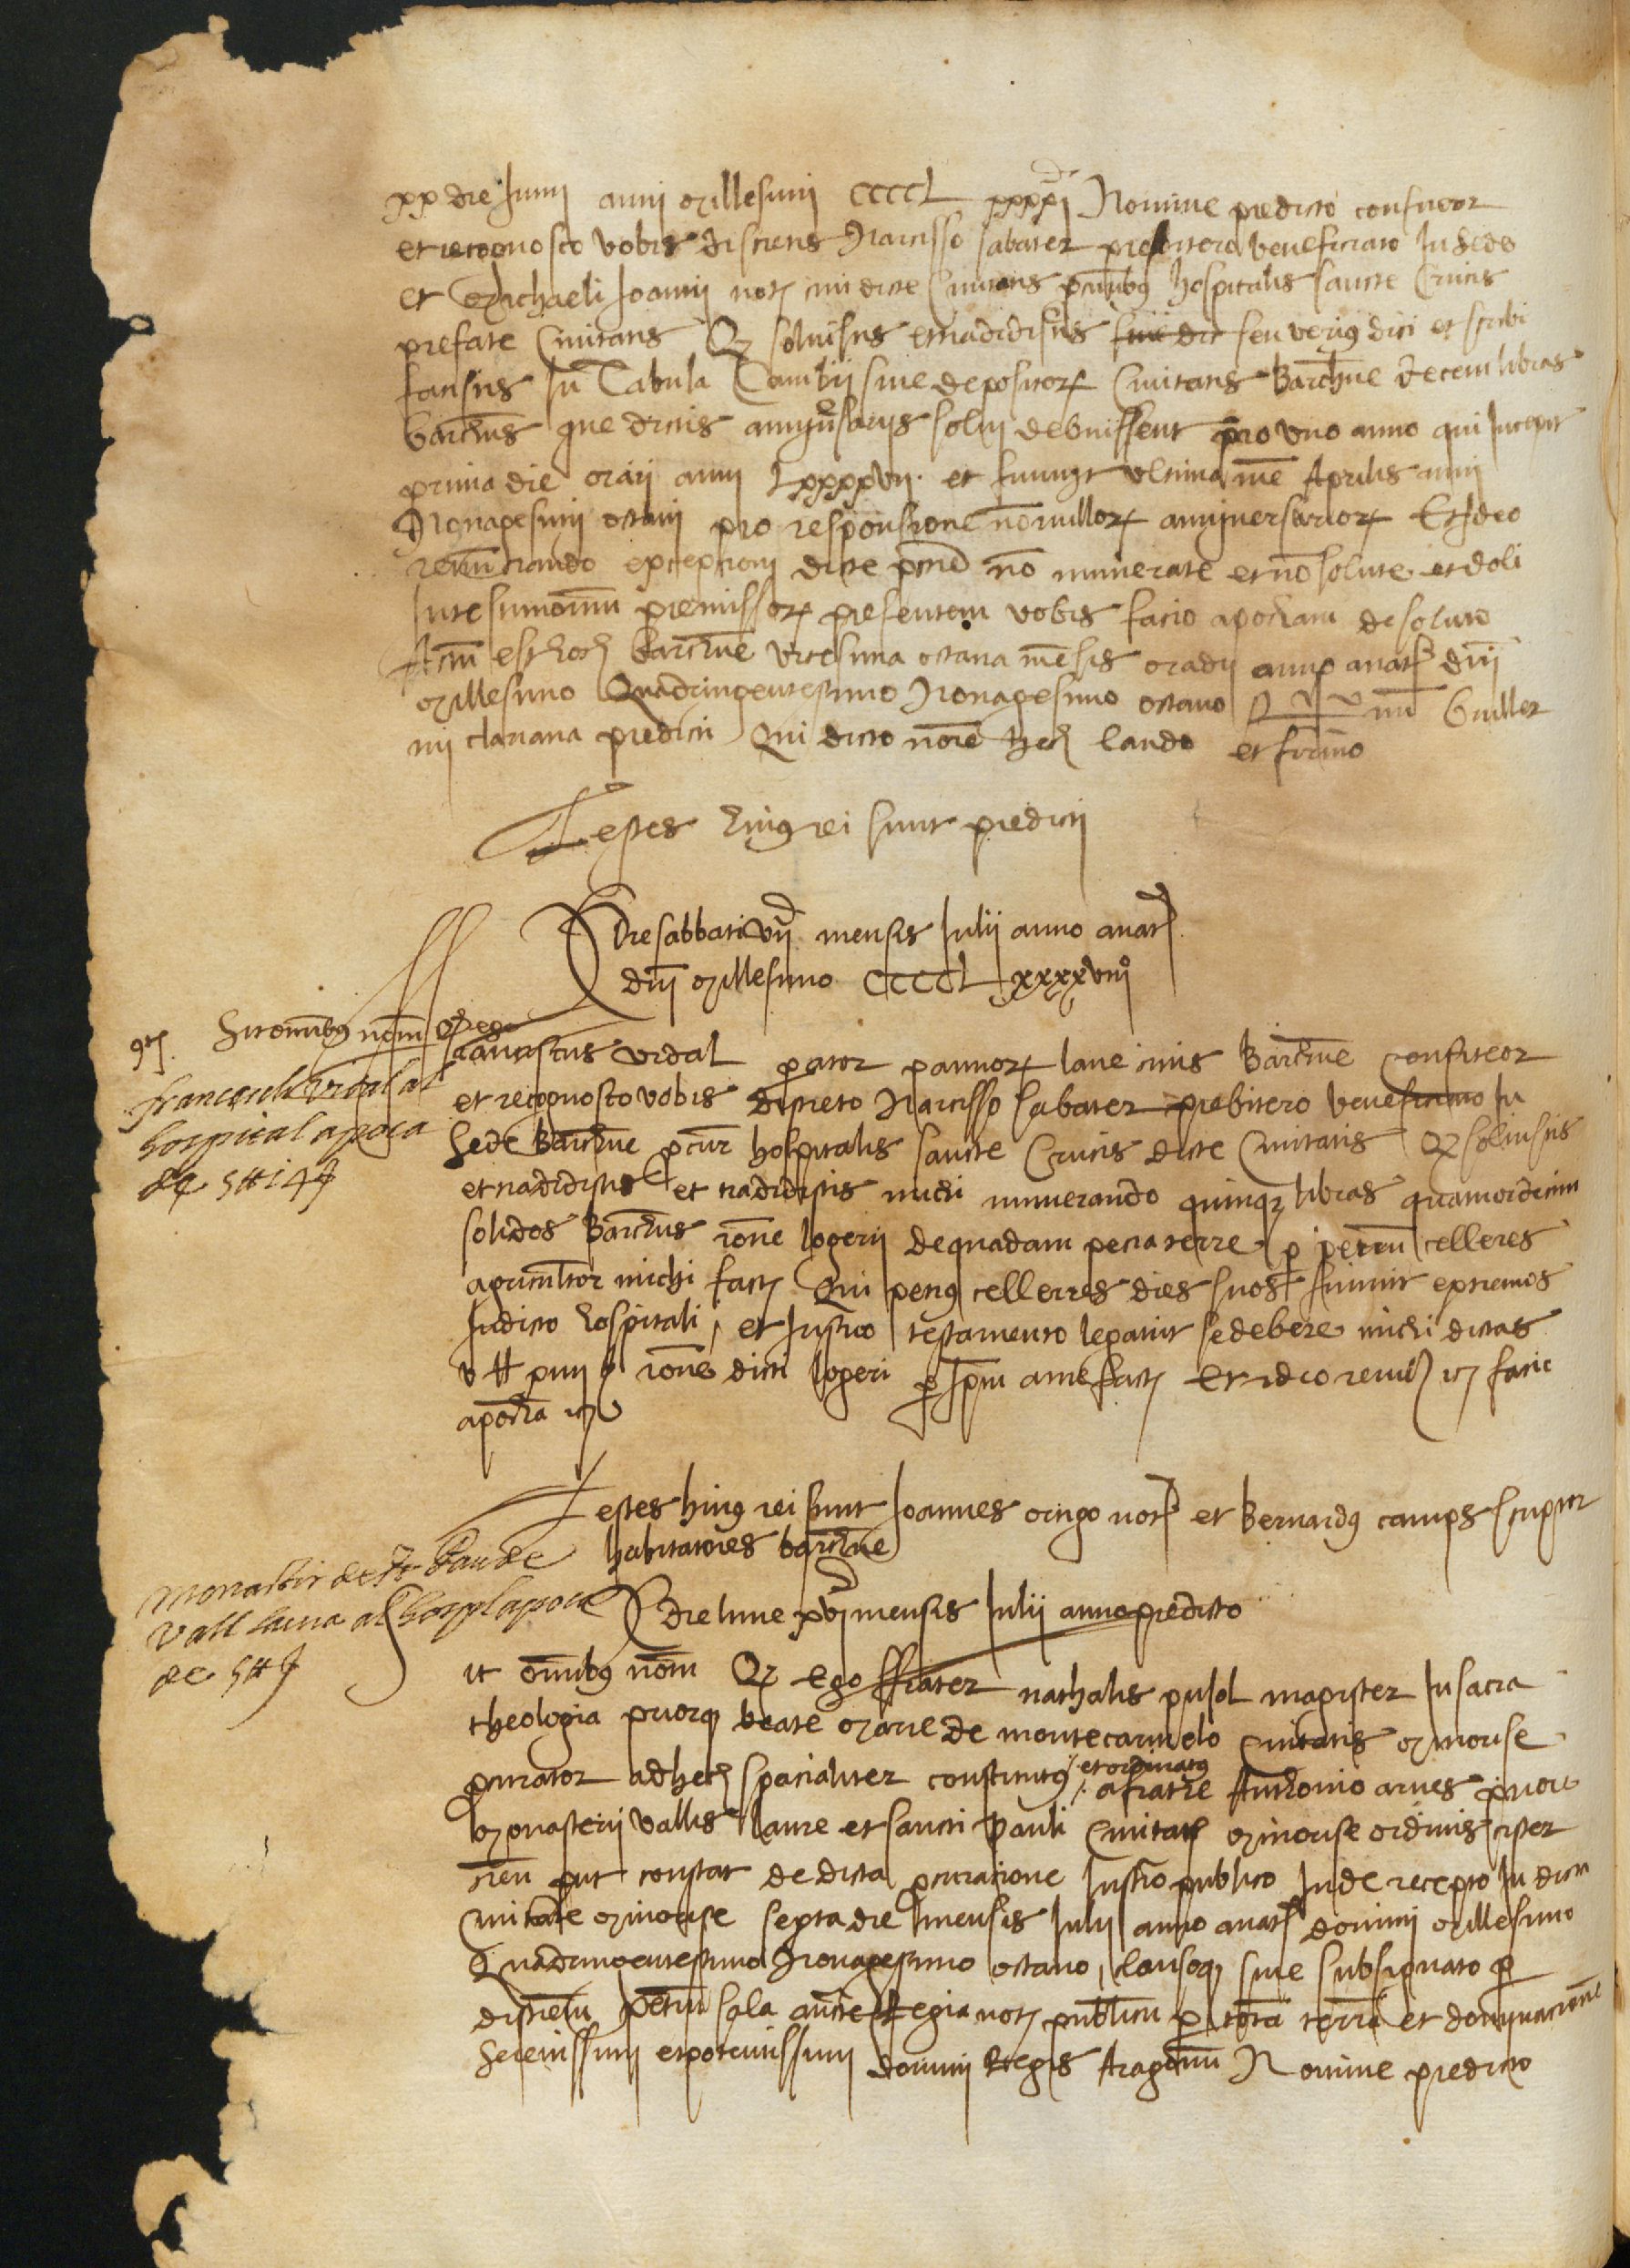 xx die Junii anni Millesimi CCCCL xxxxi Nomine predicto confiteor
et recognosco vobis discretis Narcisso sabater presbitero beneficiato In sede
et Michaeli Joanni not civi dicte Civitatis pcuribus hospitalis sancte Crucis
prefate Civitatis Q solvistis et tradidistis sive dic seu verius dici et scribi
fecistis In Tabula Cambii sive depositor Civitatis Barchne decem libras
barchns que dictis anniversariis solvi debuissent pro uno anno qui Incepit
prima die Maii anni Lxxxxvii et finivit ultima me Aprilis anni
Nonagesimi octavi pro responsione nonnullor anniversarior Et Ideo
renunciando exceptioni dicte pcnie no numerate et no solute et doli
In testimonium premissor presentem vobis facio apocham de soluto
Actum est hoc barchne vicesima octava mesis Madii anno a nat dni
Millesimo Quadringentesimo Nonagesimo octavo Guiller
mi clariana predicti Qui dicto noie hec laudo et firmo
Testes huius rei sunt predicti
Die sabbati vii mensis Julii anno a nat
dni Millesimo CCCCL xxxxviii
Sit omnibus notum Q Ego
franciscus vidal parator pannor lane civis Barchne Confiteor
francesch vidal al
hospital apoca
de 5 ₶ 14 ſ
et recognosco vobis discreto Narcisso sabater prebitero beneficiato In
Sede Barchne pcur hospitalis sancte Crucis dicte Civitatis Q solvistis
et tradidistis et tradidistis michi numerando quinq libras quatuordecim
solidos Barchns rone logerii de quadam pecia terre p petru celleres
agricultor michi fact Qui petrus cellerres dies suos finivit extremos
In dicto hospitali et In suo testamento legavit se debere michi dictas
v ₶ xiiii ſ rone dicti logeri p Ipm a me fact Et ideo renu facio
apocha
Testes huius rei sunt Joannes not et Bernardus camps scriptor
habitatores barchne
Monastir de St Pau de
Vall laura al hospl apoca
de 5 ₶ ſ
Die lune xvi mensis Julii anno predicto
it omnibus notu Q Ego ffrater nathalis pujol magister In sacra
theologia priorq beate Marie de monte carmelo Civitatis Minorise
procurator ad hec specialiter constitutus et ordinatus a fratre Anthonio arnes priore
Monasterii vallis laure et sancti pauli Civitatis Minorise ordinis cister
cien put constat de dicta pcuracione Instro publico Inde recepto In dicta
Civitate Minorise sexta die mensis Julii anno a nat domini Millesimo
Quadringentesimo Nonagesimo octavo clausoq sive subsignato p
discretu petru sala aucte Regia not publicu p tota terra et dominacione
Serenissimi et potentissimi domini Regis Aragonu Nomine predicto